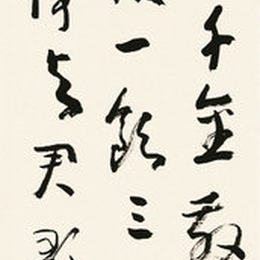 千金散
須一飲三
停与君歌